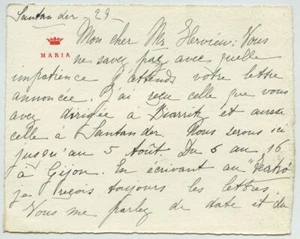 Santander 29
MARIA
Mon cher Mr. Hervieu: Vous
ne savez pas avec quelle
impatience j'attends votre lettre
annoncée. J'ai reçu celle que vous
avez à Biarritz et aussi
celle à Santander. Nous serons ici
jusqu'au 5 Août. Du 6 au 16
à Gijon. En écrivant au "
je reçois toujours les lettres.
Vous me parlez de date et du